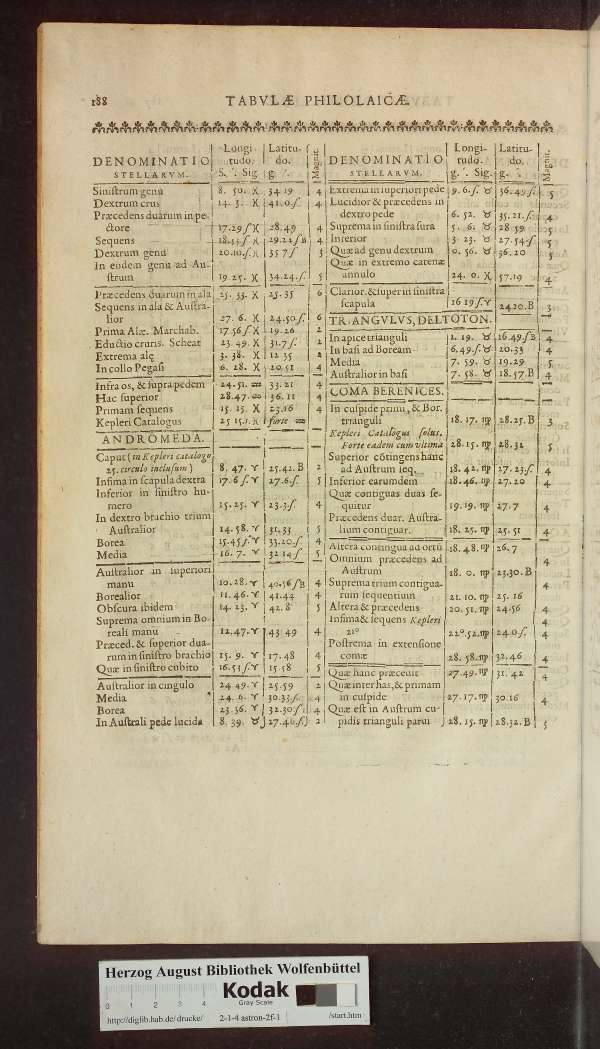 188 TABVLÆ PHILOLAICÆ.
DENOMINATIO STELLARVM. Longitudo. S. Sig. Latitudo. g. Magnit.
Siniſtrum genu 8. 50. ♓ 34 19 4
Dextrum crus 14. 3. ♓ 41.0.ſ. 4
Præcedens duarum in pe-
ctore 17.29ſ ♓ 28.49 4
Sequens 18. ♓ 29.21ſB 4
Dextrum genu 20.10.ſ. ♓ 35 7ſ 5
In eodem genu ad Au-
ſtrum 19 25. ♓ 34.24.ſ. 5
Præcedens duarum in ala 25. 33. ♓ 25.35 6
Sequens in ala & Auſtra-
lior 27. 6. ♓ 24.50.ſ. 6
Prima Alæ. Marchab. 17.56ſ ♓ 19.26 2
Eductio cruris. Scheat 23. 49. ♓ 31.7ſ. 2
Extrema alę 3. 38. ♓ 12 35 2
In collo Pegaſi 6. 28. ♓ 20.51 4
Infra os, & ſupra pedem 24.51. ♒ 33. 21 4
Hac ſuperior 28.47. ♒ 36. 11 4
Primam ſequens 15. 15. ♓ 23.16 4
Kepleri Catalogus 25 15. ♓ forte ♒
ANDROMEDA.
Caput (in Kepleri catalogo
25. circulo incluſum) 8. 47. ♈ 25.42. B 2
Infima in ſcapula dextra 17. 6 ſ. ♈ 27.6.ſ. 5
Inferior in ſiniſtro hu-
mero 15.25. ♈ 23.3.ſ. 4
In dextro brachio trium
Auſtralior 14. 58. ♈ 31.33 5
Borea 15.45ſ. ♈ 33.20.ſ. 4
Media 16. 7. ♈ 32 14ſ. 5
Auſtralior in ſuperiori
manu 10.28. ♈ 40.56ſB 4
Borealior 11. 46. ♈ 41.44 4
Obſcura ibidem 14. 23. ♈ 42. 8 5
Suprema omnium in Bo-
reali manu 12.47. ♈ 43 49 4
Præced. & ſuperior dua-
rum in ſiniſtro brachio 15. 9. ♈ 17. 48 4
Quæ in ſiniſtro cubito 16.51ſ. ♈ 15 58 5
Auſtralior in cingulo 24 49. ♈ 25.59 2
Media 24. 6. ♈ 30.33.ſ. 4
Borea 23. 56. ♈ 32.30ſ. 4
In Auſtrali pede lucida 8. 39. ♉ 27.46.ſ. 2
DENOMINATIO STELLARVM. Longitudo. g. Sig. Latitudo. g. Magnit.
Extrema in ſuperiori pede 9. 6.ſ. ♉ 36.49.ſ. 5
Lucidior & præcedens in
dextro pede 6. 52. ♉ 35. 21.ſ. 4
Suprema in ſiniſtra ſura 5. 6. ♉ 28 59 5
Inferior 3. 23. ♉ 27.54.ſ. 5
Quæ ad genu dextrum 0. 56. ♉ 36.20 5
Quæ in extremo catenæ
annulo 24. 0. ♓ 57.19 4
Clarior. & ſuper in ſiniſtra
ſcapula 16 19ſ. ♈ 24 20.B 3
TRIANGVLVS, DELTOTON.
In apice trianguli 2. 19. ♉ 16.49ſB 4
In baſi ad Boream 6.49.ſ. ♉ 20.33 4
Media 7. 59. ♉ 19.29 5
Auſtralior in baſi 7. 58. ♉ 18.57. B 4
COMA BERENICES.
In cuſpide primi, & Bor.
trianguli 18. 17. ♍ 28.25. B 3
Kepleri Catalogus ſolus.
Forte eadem cum vltima 28. 15. ♍ 28.32 5
Superior cõtingens hanc
ad Auſtrum ſeq. 18. 42. ♍ 27. 23.ſ. 4
Inferior earumdem 18.46. ♍ 27.20 4
Quæ contiguas duas ſe-
quitur 19.19. ♍ 27. 7 4
Præcedens duar. Auſtra-
lium contiguar. 18. 25. ♍ 25. 51 4
Altera contingua ad ortũ 18. 48. ♍ 26.7 4
Omnium præcedens ad
Auſtrum 18. 0. ♍ 23.30. B 4
Suprema trium contigua-
rum ſequentium 21. 10. ♍ 25. 16 4
Altera & præcedens 20. 51. ♍ 24.56 4
Infima & ſequens Kepleri
21° 22°. 52. ♍ 24.0.ſ. 4
Poſtrema in extenſione
comæ 28. 58. ♍ 32.46 4
Quæ hanc præcedit 27.49. ♍ 31. 42 4
Quæ inter has, & primam
in cuſpide 27. 17. ♍ 30.16 4
Quæ eſt in Auſtrum cu-
pidis trianguli parui 28. 15. ♍ 28.32. B 5
Herzog August Bibliothek Wolfenbüttel
0 1 2 3 4
Kodak
Gray Scale
http://diglib.hab.de/drucke/ 2-1-4-astron-2f-1 /start.htm